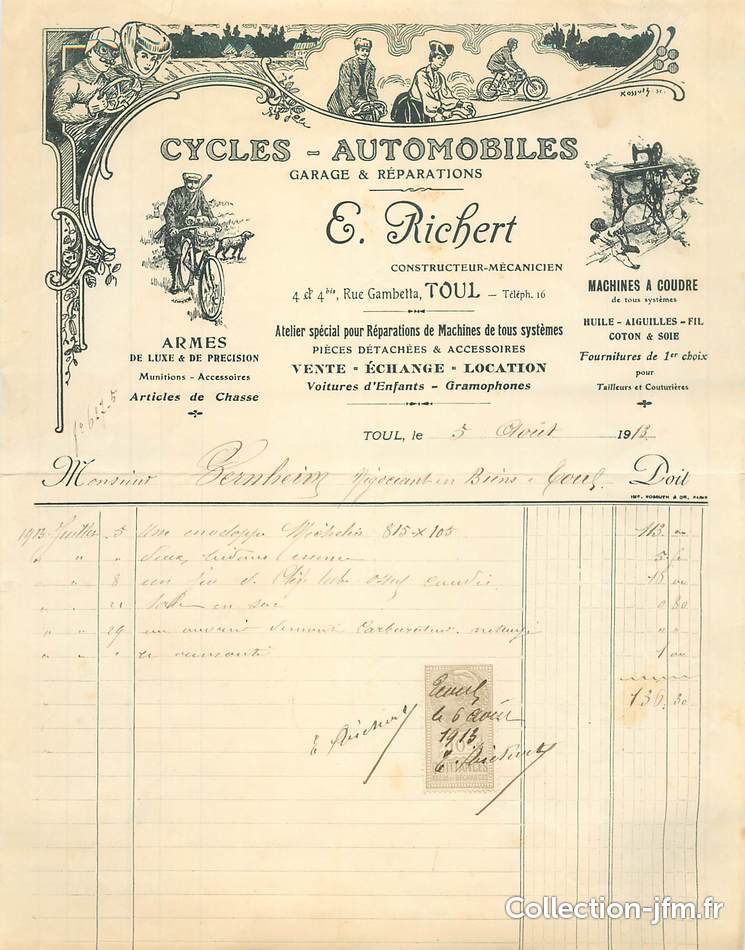 Kossuth
CYCLES - AUTOMOBILES
GARAGE & RÉPARATIONS
E. Richert
CONSTRUCTEUR-MÉCANICIEN
4 et 4 bis, Rue Gambetta, TOUL - Téléph. 16
Atelier spécial pour Réparations de Machines de tous systèmes
PIÈCES DÉTACHÉES & ACCESSOIRES
VENTE - ÉCHANGE - LOCATION
Voitures d'Enfants - Gramophones
ARMES
DE LUXE & DE PRECISION
Munitions - Accessoires
Articles de Chasse
MACHINES A COUDRE
de tous systèmes
HUILE - AIGUILLES - FIL
COTON & SOIE
Fournitures de 1er choix
pour
Tailleurs et Couturières
TOUL, le 5 Août 1913
Monsieur Bernheim Négociant en Biens à Toul. Doit
IMP. KOSSUTH & Cie, PARIS
1913 Juillet 5 Une enveloppe Michelin 815 x 105 113
" " " deux bidons essence
" " 8 un jeu de
" " 21 en 0 80
" " 29 un démonté Carburateur nettoyé " "
" " " et remonté 1
136.30
Toul
le 6 Août
1913
E. Richert
E Richert
QUITTANCES
Collection-jfm.fr